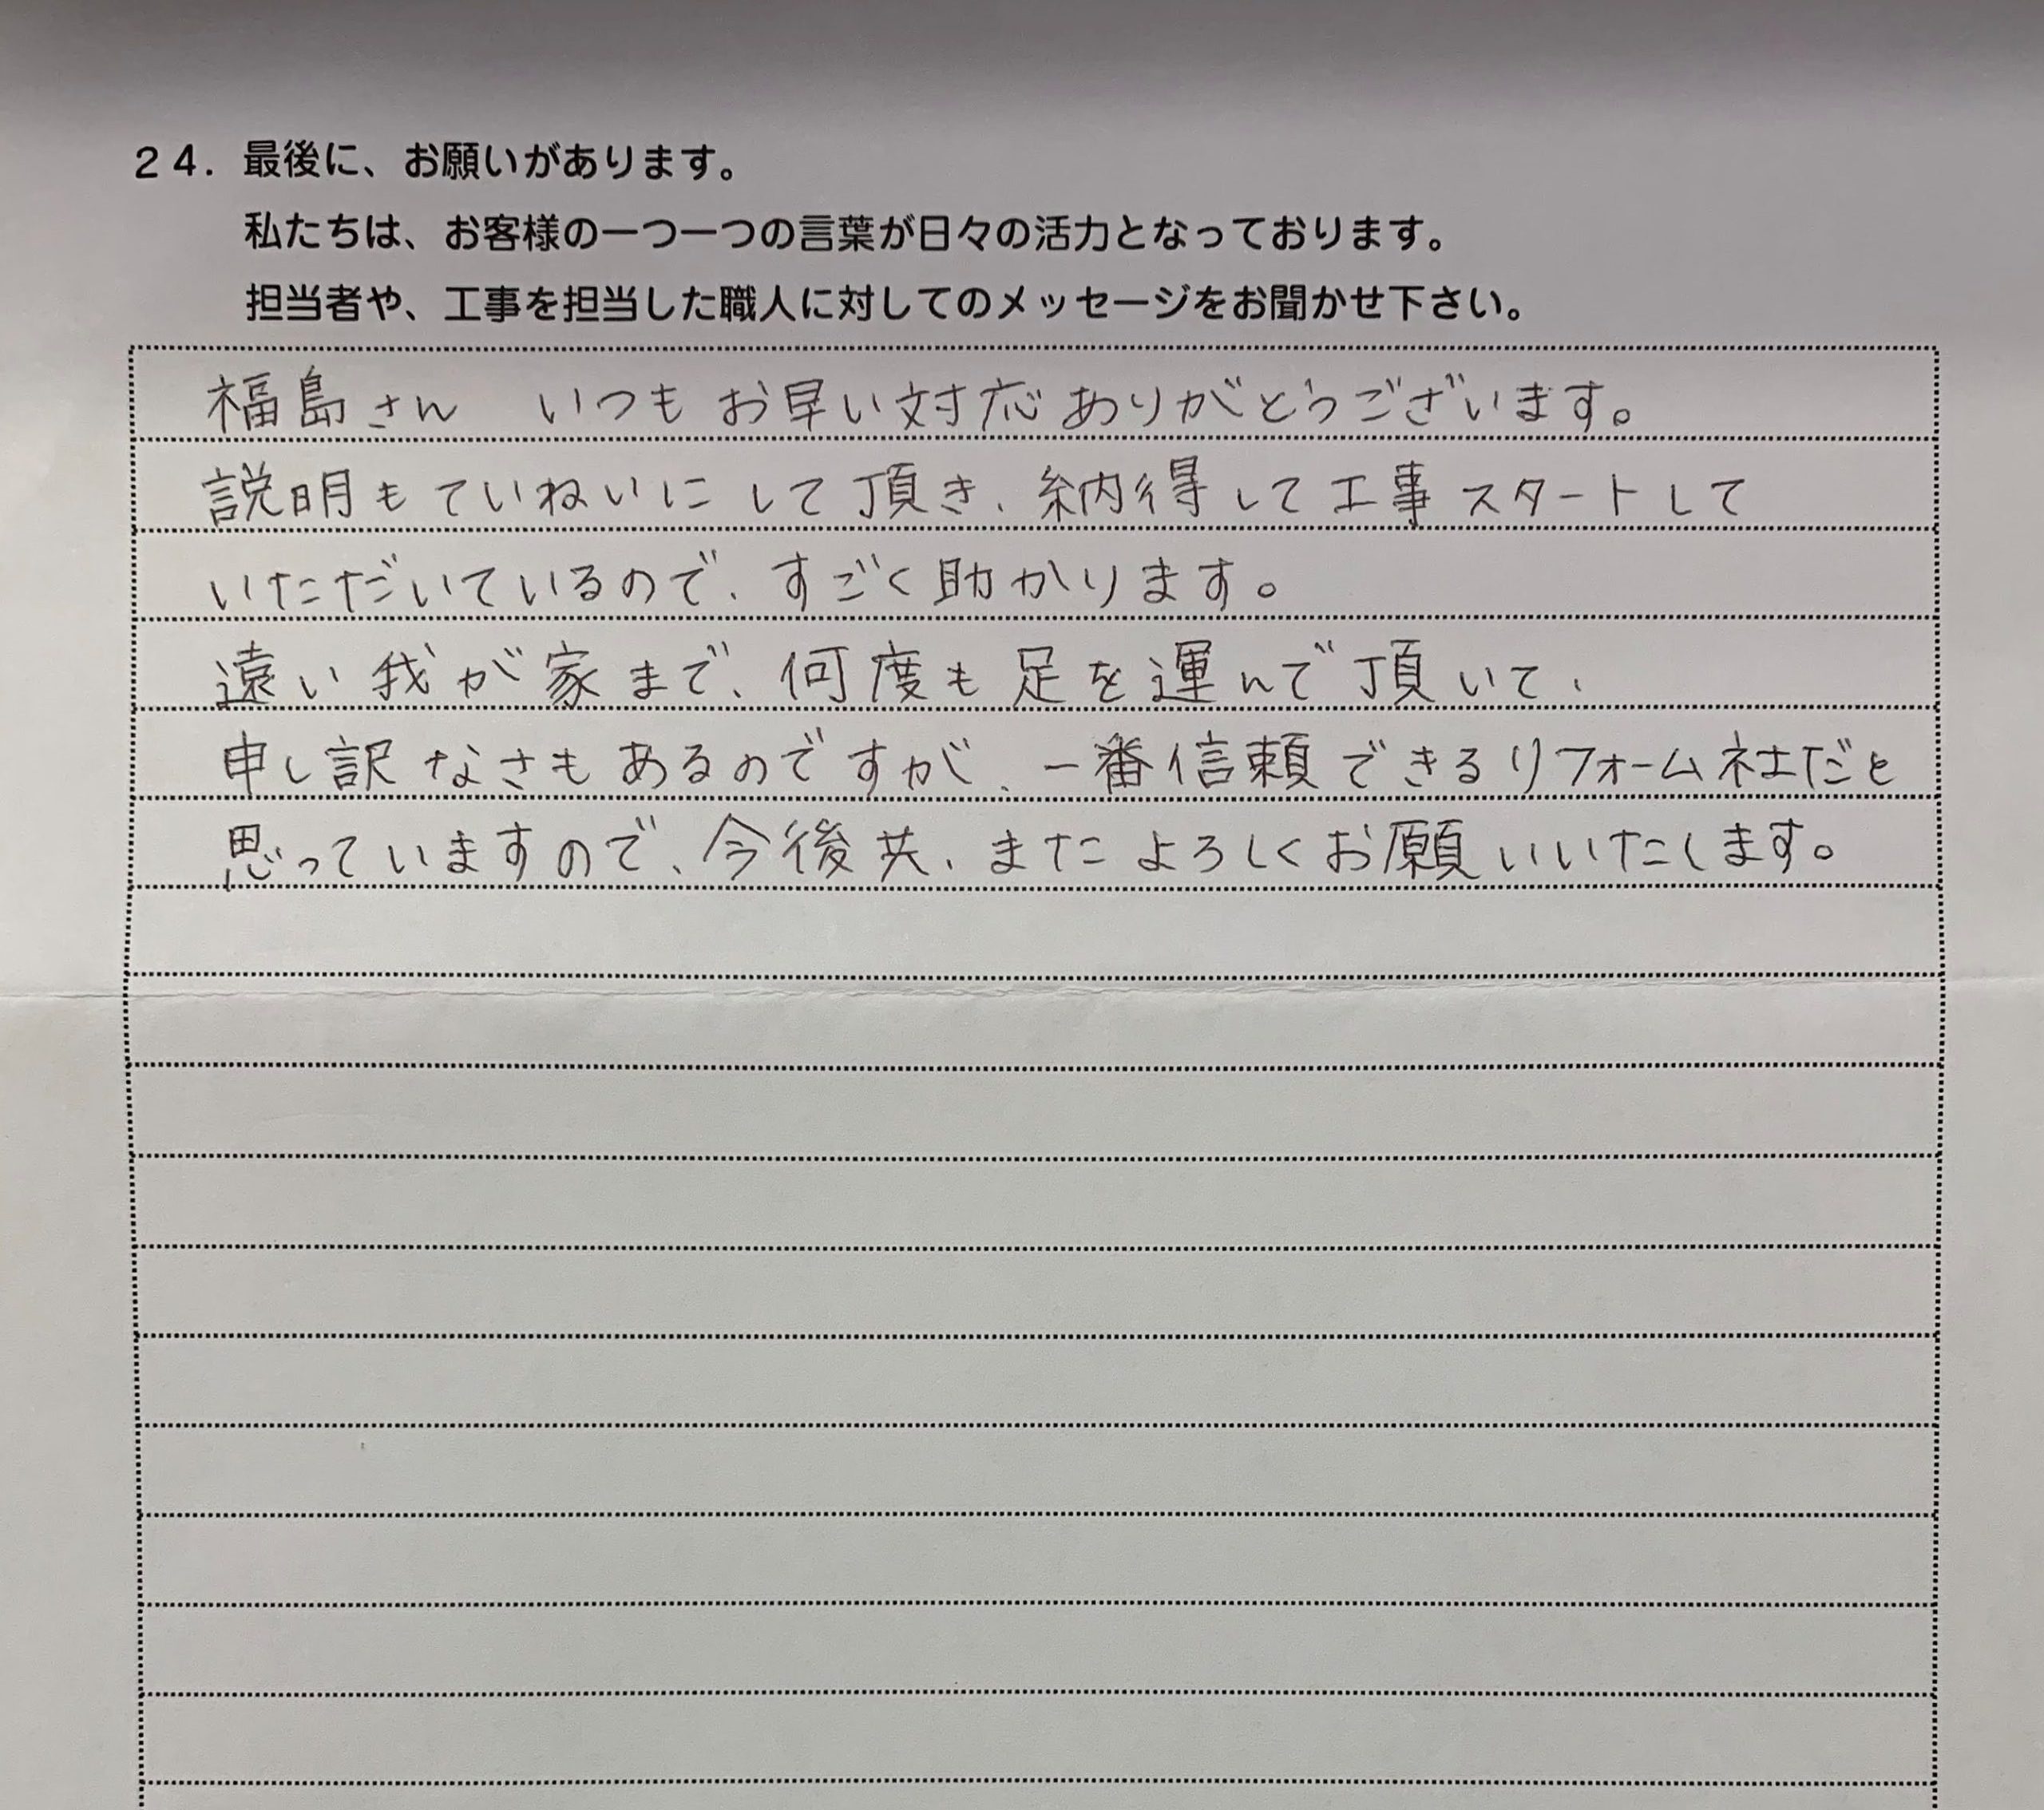 24. 最後に、お願いがあります。
私たちは、お客様の一つ一つの言葉が日々の活力となっております。
担当者や、工事を担当した職人に対してのメッセージをお聞かせ下さい。
福島さん　いつもお早い対応ありがとうございます。
説明もていねいにして頂き、納得して工事スタートして
いただいているので、すごく助かります。
遠い我が家まで、何度も足を運んで頂いて、
申し訳なさもあるのですが、一番信頼できるリフォーム社だと
思っていますので、今後共、またよろしくお願いいたします。